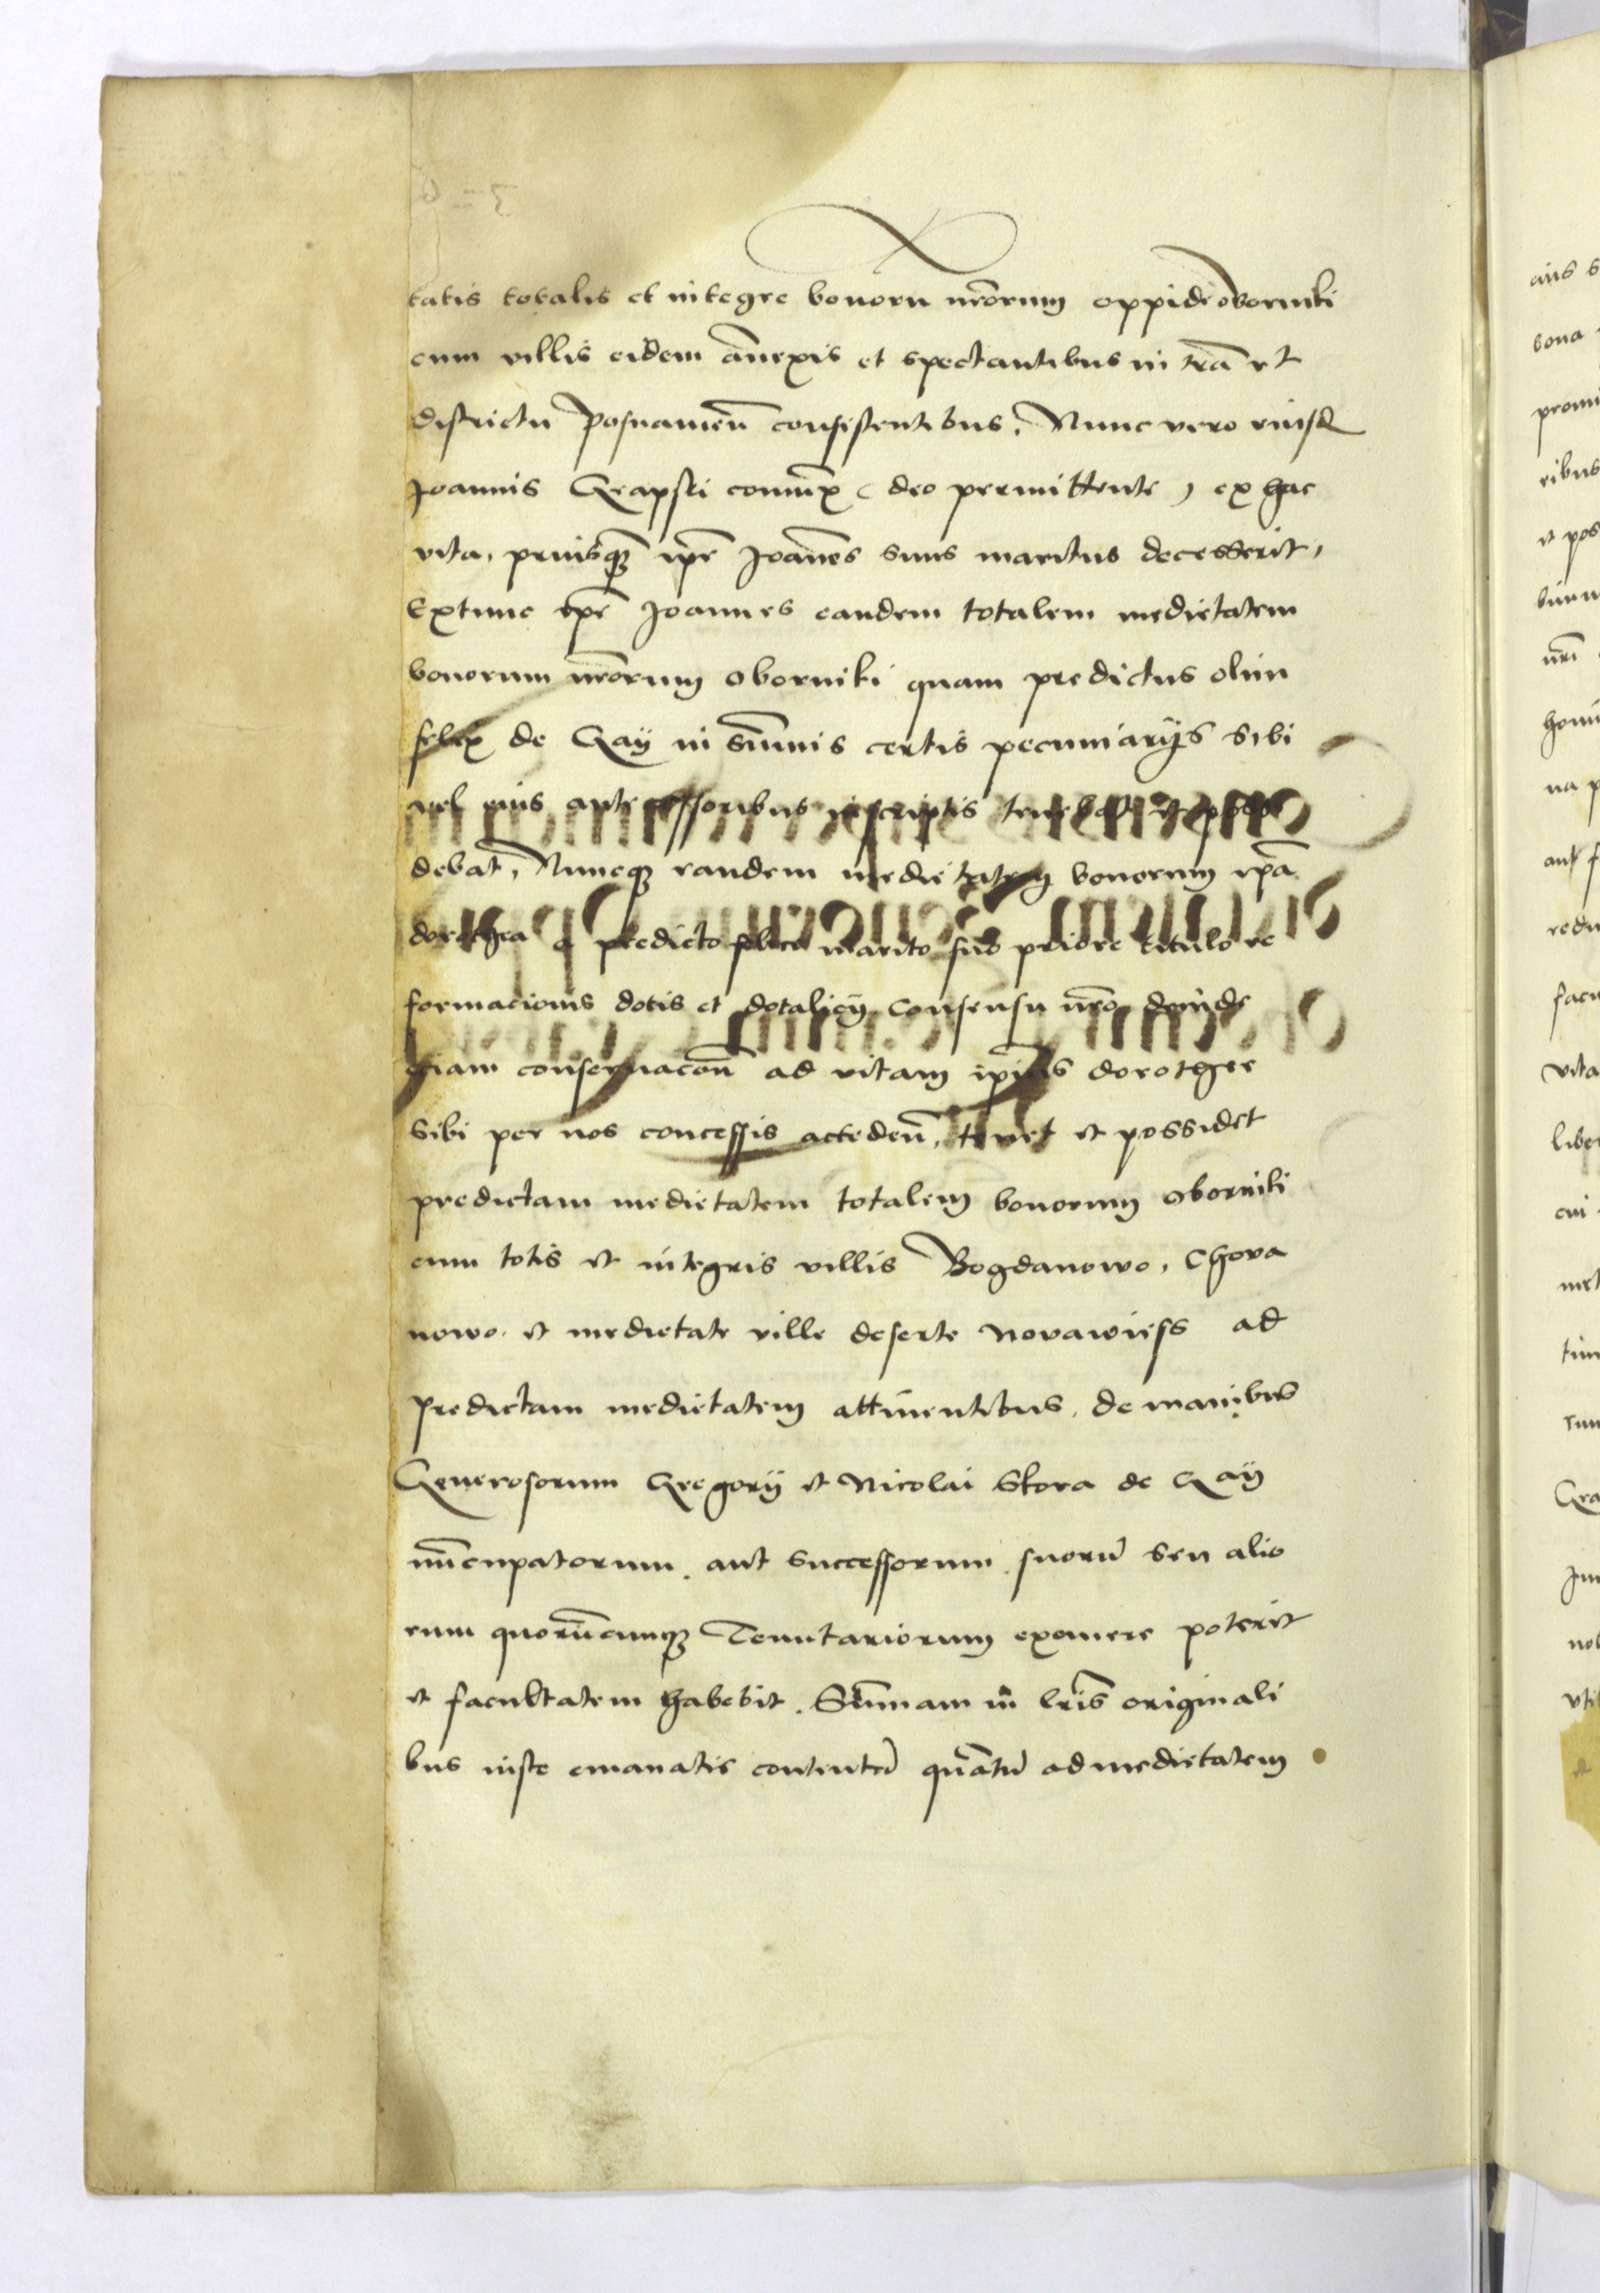 tatis totalis et integre bonoru nrorum oppidi oborniki
cum villis eidem annexis et spectantibus in tra et
districtu Posnanien consistentibus. Nunc vero eiusd
Joannis Grapski coniunx (deo permittente) ex hac
vita, priusq ipse Joanes suus maritus decesserit,
Extunc ipse Joannes eandem totalem medietatem
bonorum nrorum oborniki quam predictus olim
felix de Gay in summis certis pecuniariis sibi
vel eius antecessoribus inscriptis tenebat et possi
debat, Nuncq eandem medietatem bonorum ipsa
dorothea a predicto felice marito suo priore titulo re
formacionis dotis et dotalicii consensu nro deinde
quam conservacon ad vitam ipsius dorothee
sibi per nos concessis acceden, tenet et possidet
predictam medietatem totalem bonorum oborniki
cum totis et integris villis Bogdanowo, Chova
nowo et medietate ville deserte Novawiess ad
Predictam medietatem attinentibus, de manibus
Generosorum Gregorii et Nicolai Skora de Gay
nuncupatorum, aut successorum suoru seu alio
rum quorucunq Tenutariorum eximere poterit
et facultatem habebit. Summam in lris originali
bus iuste emanatis contentu quantu ad medietatem